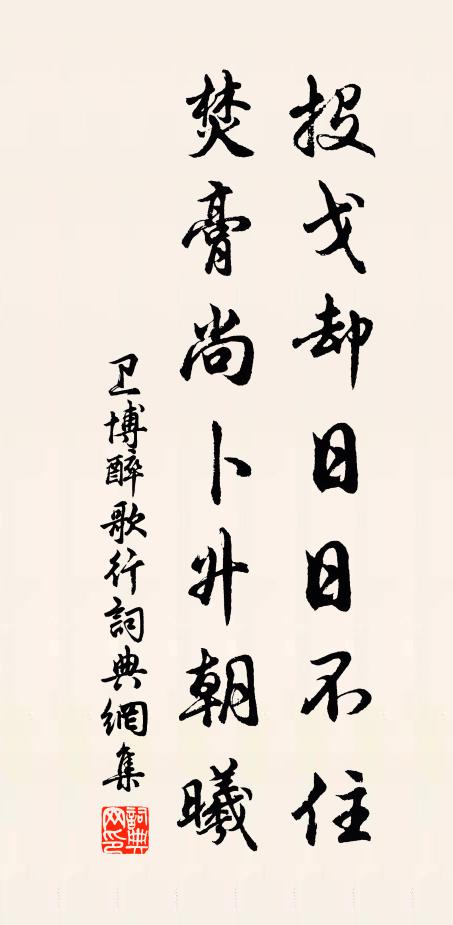 投戈却日日不住
焚膏尚卜升朝曦
卫博醉歌行詞典網集
詞典网印